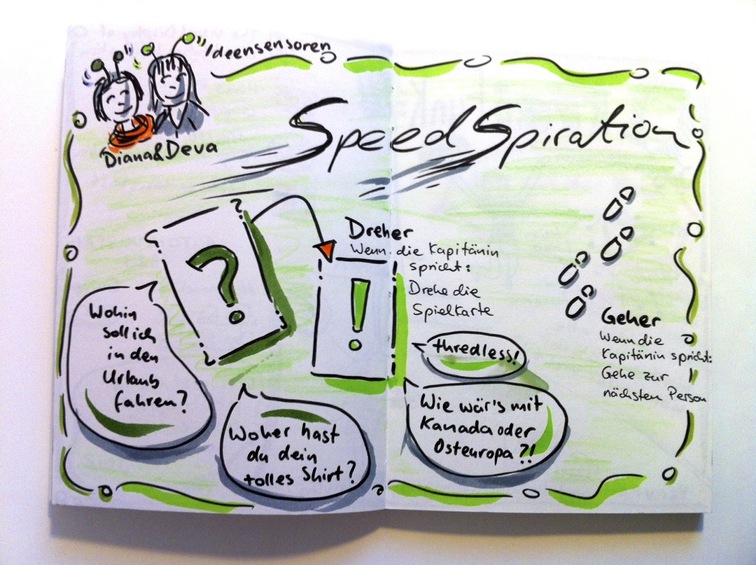 Ideensensoren
Diana&Deva
SpeedSpiration
?
!
Dreher
Wenn die Kapitänin
spricht:
Drehe die
Spielkarte
Geher
Wenn die
Kapitänin spricht:
Gehe zur
nächsten Person
Wohin
soll ich
in den
Urlaub
fahren?
Woher hast
du dein
tolles Shirt?
thredless!
Wie wär's mit
Kanada oder
Osteuropa?!